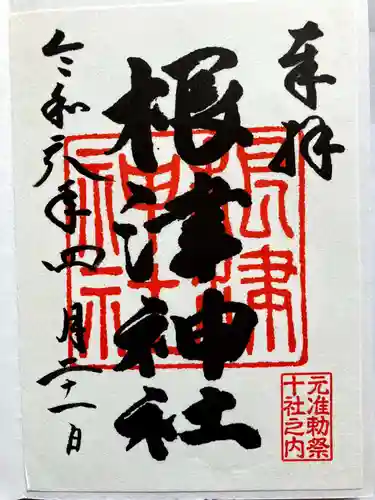 奉拝
根津神社
根津
神社
令和六年四月二十一日
元准勅祭
十社之内